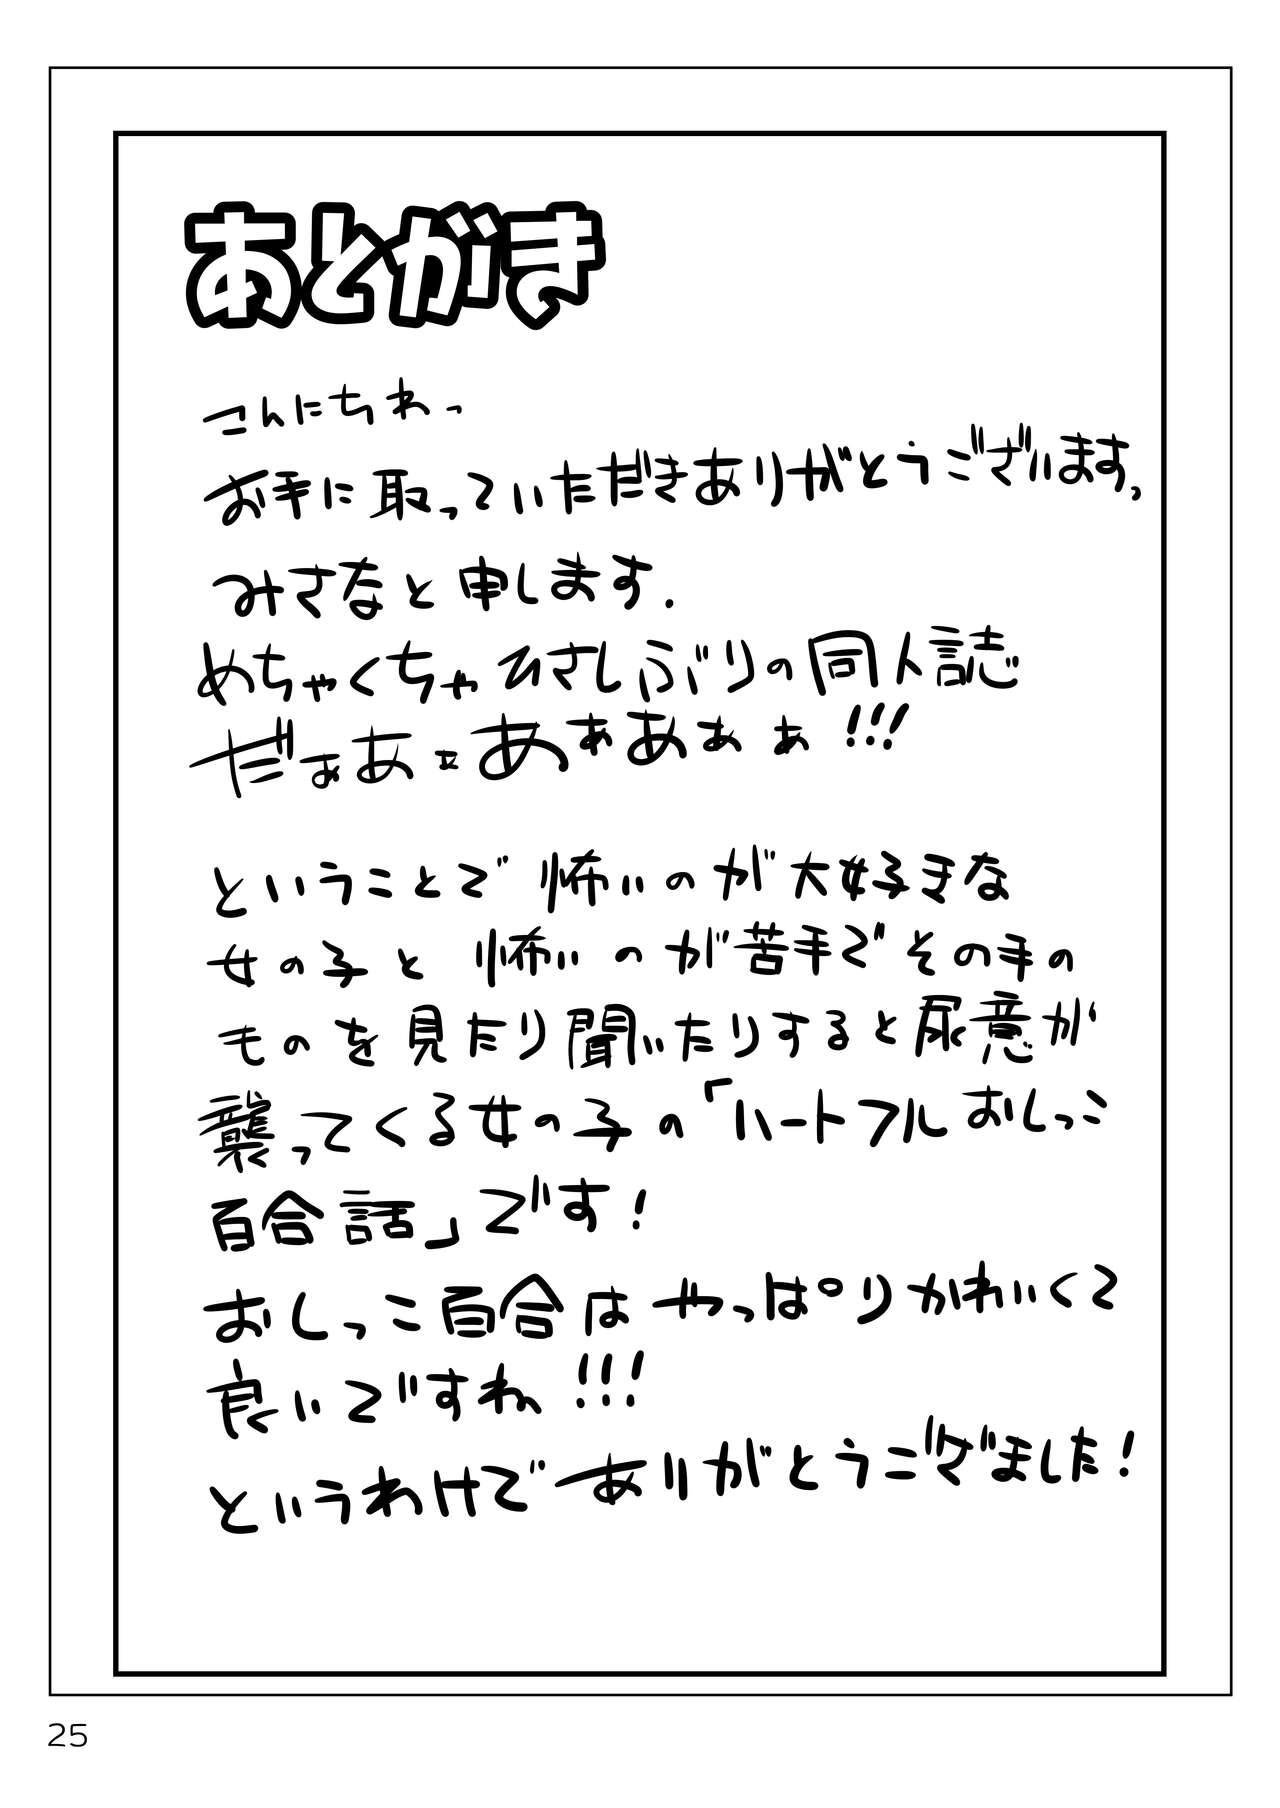 あとがき
こんにちわっ
お手に取っていただきありがとうございます。
みさなと申します.
めちゃくちゃひさしぶりの同人誌
だぁあぁあぁあぁぁ!!!
ということで怖いのが大好きな
女の子と怖いのが苦手でその手の
ものを見たり聞いたりすると尿意が
襲ってくる女の子の「ハートフルおしっこ
百合話」です!
おしっこ百合はやっぱりかわいくて
良いですわ!!!
というわけでありがとうございました!
25